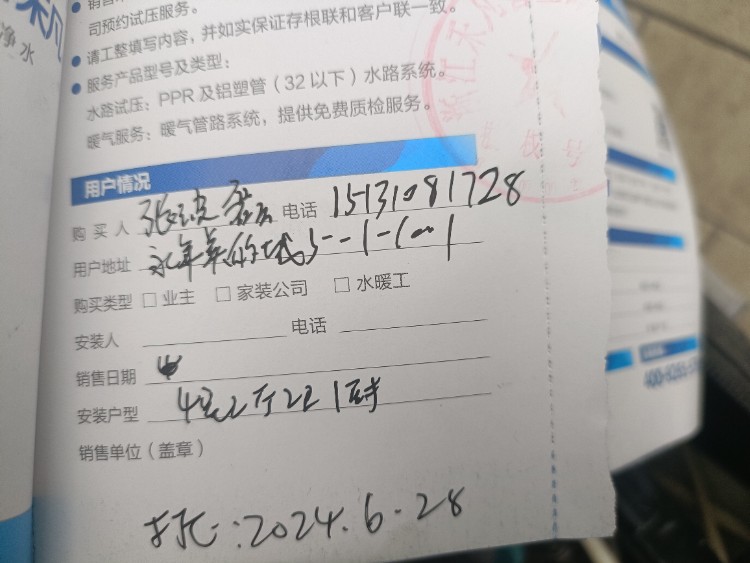 净水
司预约试压服务。
请工整填写内容，并如实保证存根联和客户联一致。
服务产品型号及类型：
水路试压：PPR 及铝塑管（32以下）水路系统。
暖气服务：暖气管路系统，提供免费质检服务。
用户情况
购买人 电话 15131081728
用户地址 永年
购买类型 □ 业主 □ 家装公司 □ 水暖工
安装人 电话
销售日期
安装户型 4室2厅2卫1厨
销售单位（盖章）
2024.6.28